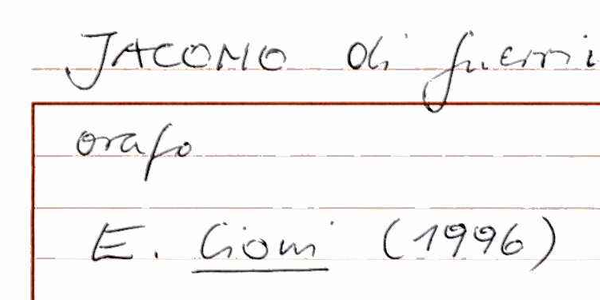 JACOMO di guerri
orafo
E. Cioni (1996)